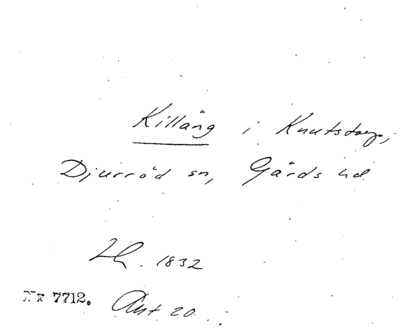 Killäng i Knutstorp,
Djurröd sn, Gärds hd
Lh. 1832
Nr 7712. Akt 20.